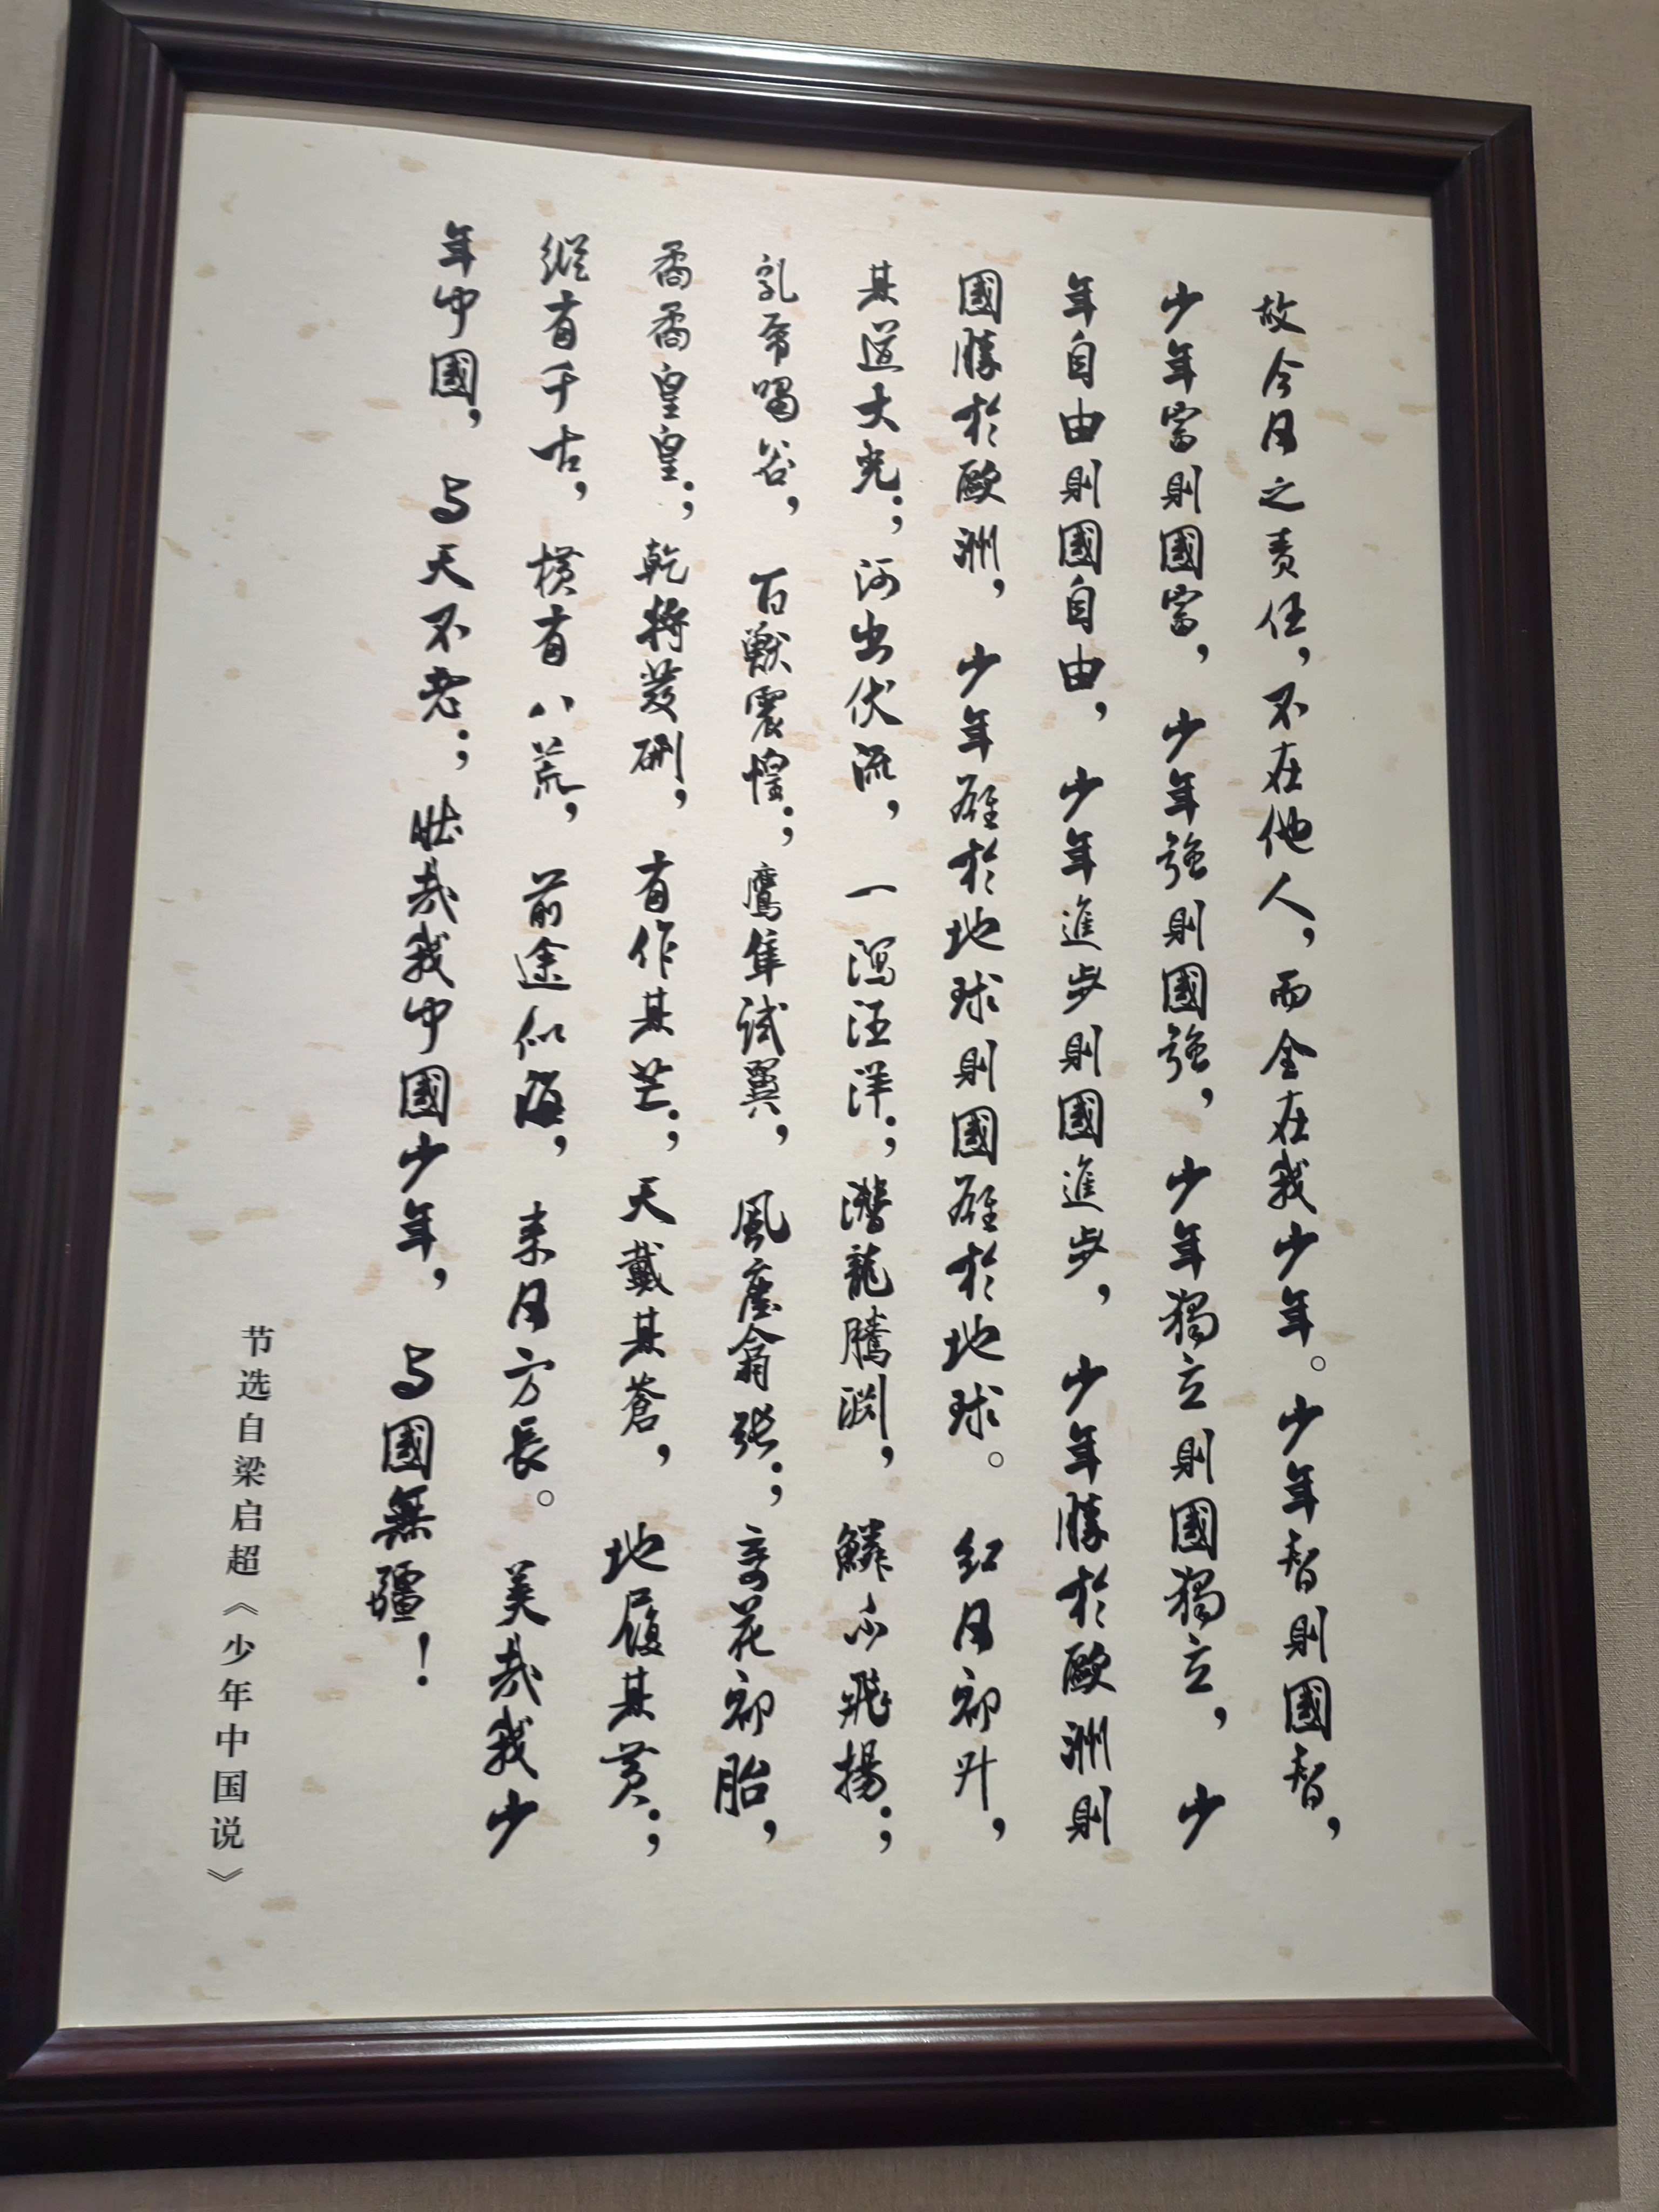 故今日之责任，不在他人，而全在我少年。少年智則國智，
少年富則國富，少年強則國強，少年獨立則國獨立，少
年自由則國自由，少年進步則國進步，少年勝於歐洲則
國勝於歐洲，少年雄於地球則國雄於地球。红日初升，
其道大光；河出伏流，一瀉汪洋；潛龍騰淵，鱗爪飛揚；
乳虎嘯谷，百獸震惶；鷹隼试翼，風塵翕張；奇花初胎，
矞矞皇皇；乾將發硎，有作其芒；天戴其蒼，地履其黄；
縱有千古，横有八荒，前途似海，来日方長。美哉我少
年中國，与天不老；壯哉我中國少年，与國無疆！
节选自梁启超《少年中国说》